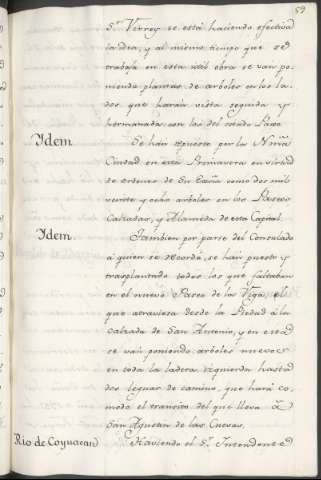 59
S.or Virrey se está haciendo efectiva
la idea, y al mismo tiempo que se
trabaja en esta util obra se van po-
niendo plantas de arboles en los la-
dos que harán vista seguida y
hermanada con las del citado Paseo
Idem. Se han repuesto por la Nma.
Ciudad en esta Primavera en virtud
de ordenes de Su Exca. como dos mil
veinte y ocho arboles en los Paseos
Calzadas, y Alameda de esta Capital.
Idem. Tambien por parte del Consulado
á quien se recordó, se han puesto y
trasplantado todos los que faltaban
en el nuevo Paseo de las Vigas, el
que atraviesa desde la Piedad á la
calzada de San Antonio, y en esta
se van poniendo arboles nuevos
en toda la ladera izquierda hasta
dos leguas de camino, que hará co-
modo el transito del que lleva á
San Agustin de las Cuevas.
Rio de Coyoacan Haviendo el S.r Intendente